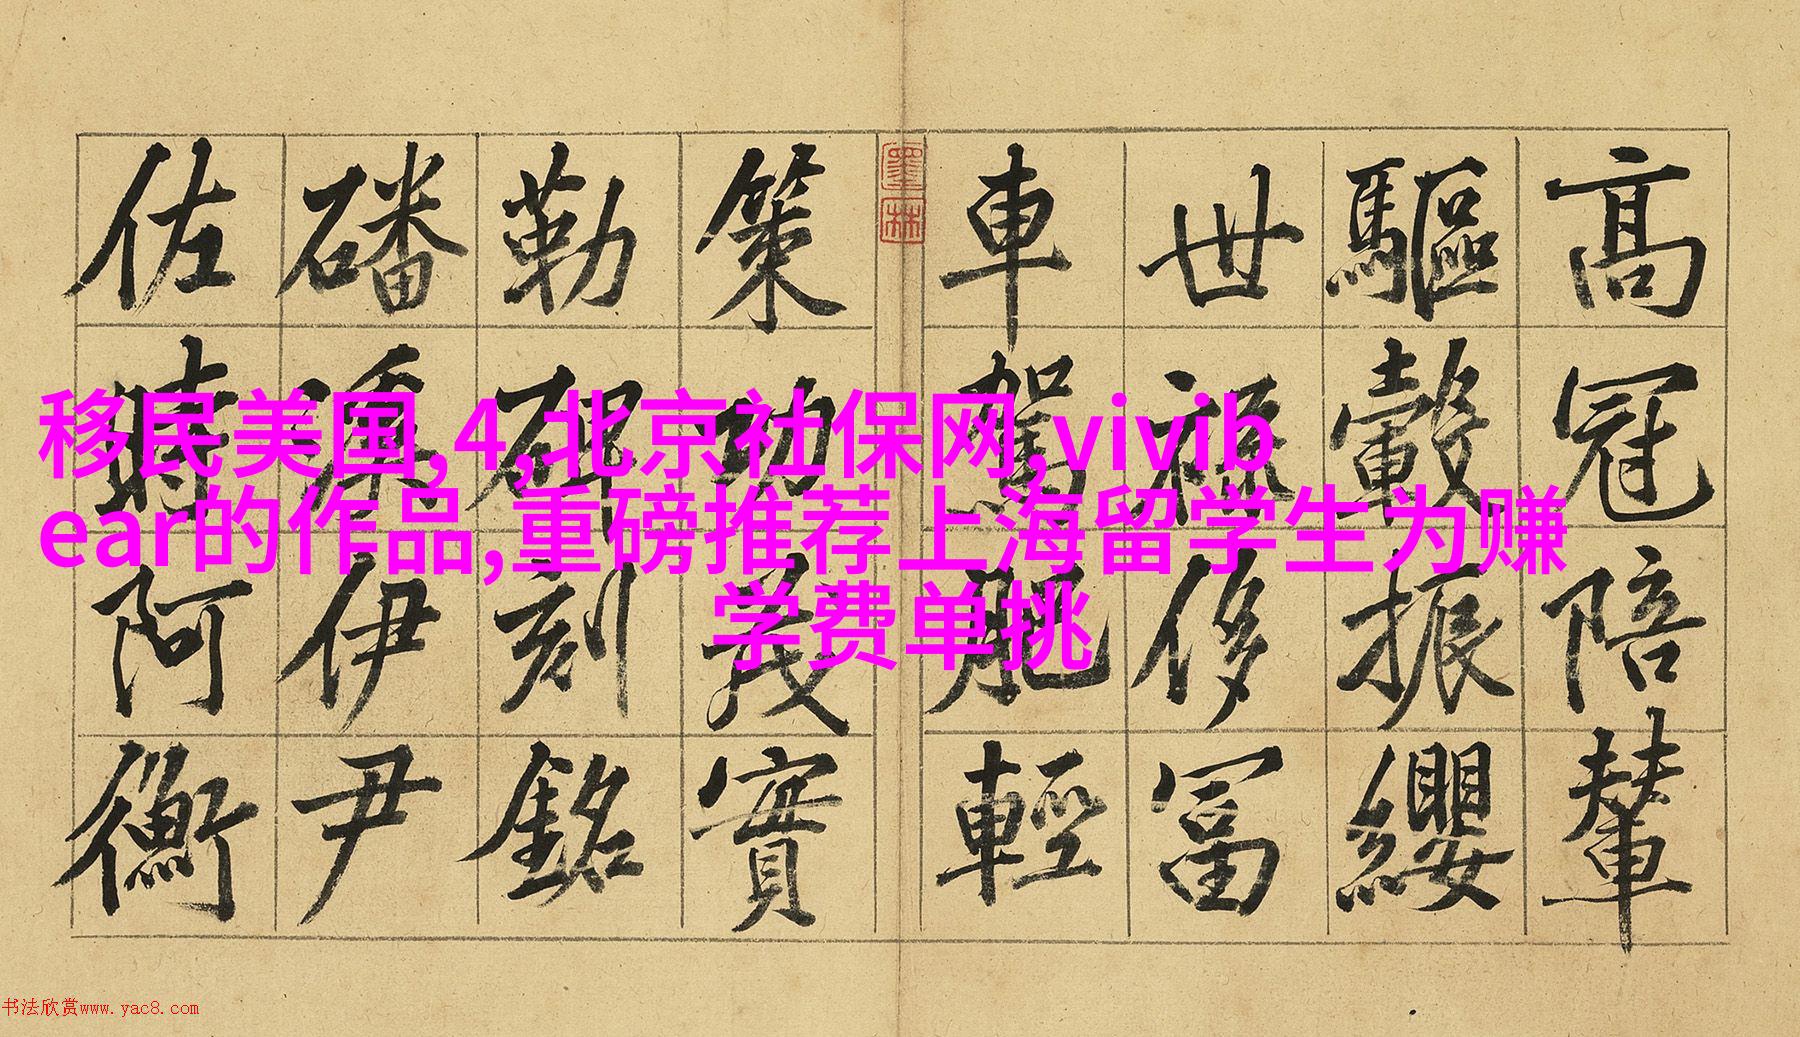 高冠陪輦
驅轂振纓
世祿侈富
車駕肥輕
墨林
策功茂實
勒碑刻銘
磻伊尹
佐時阿衡
移民美国,4,北京社保网,vivib
ear的作品,重磅推荐上海留学生为赚
学费单挑
书法欣赏www.yac8.com